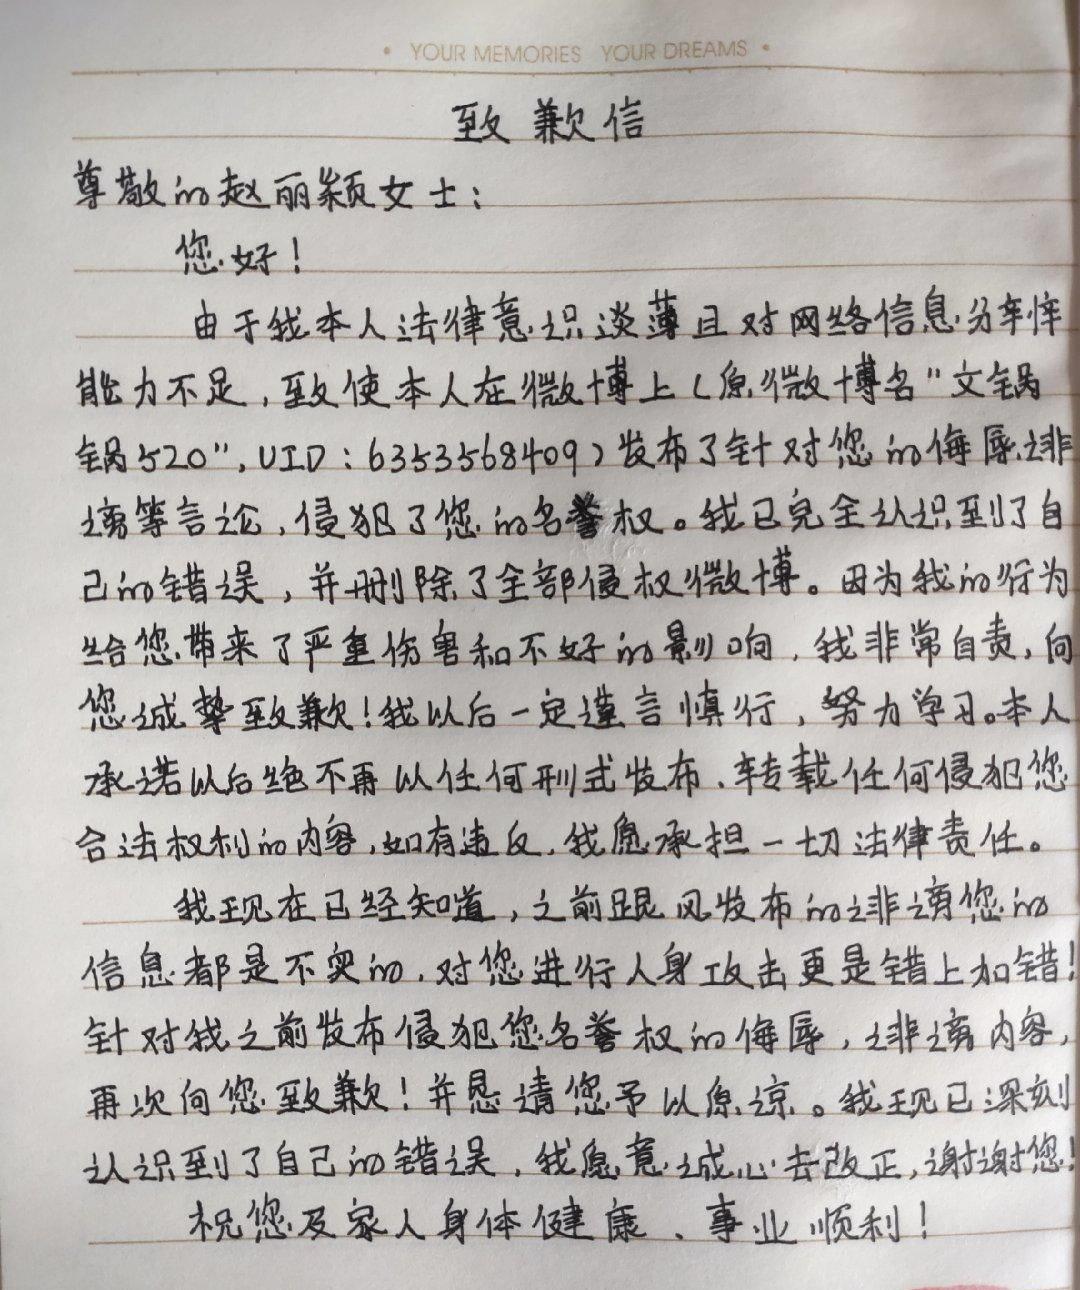 • YOUR MEMORIES YOUR DREAMS •
致歉信
尊敬的赵丽颖女士：
您好！
由于我本人法律意识淡薄且对网络信息分辨
能力不足，致使本人在微博上（原微博名"文锅
锅520"，UID：6353568409）发布了针对您的侮辱、诽
谤等言论，侵犯了您的名誉权。我已完全认识到了自
己的错误，并删除了全部侵权微博。因为我的行为
给您带来了严重伤害和不好的影响，我非常自责，向
您诚挚致歉！我以后一定谨言慎行，努力学习。本人
承诺以后绝不再以任何形式发布、转载任何侵犯您
合法权利的内容，如有违反，我愿承担一切法律责任。
我现在已经知道，之前跟风发布的诽谤您的
信息都是不实的，对您进行人身攻击更是错上加错！
针对我之前发布侵犯您名誉权的侮辱，诽谤内容，
再次向您致歉！并恳请您予以原谅。我现已深刻
认识到了自己的错误，我愿意诚心去改正，谢谢您！
祝您及家人身体健康、事业顺利！